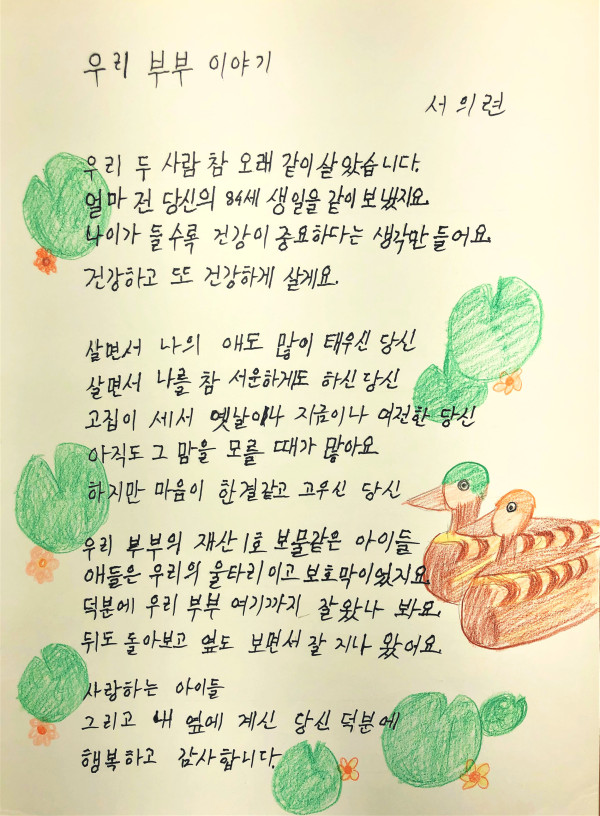 우리 부부 이야기
서의련
우리 두 사람 참 오래 같이 살았습니다.
얼마 전 당신의 84세 생일을 같이 보냈지요.
나이가 들수록 건강이 중요하다는 생각만 들어요.
건강하고 또또 건강하게 살게요.
살면서 나의 애도 많이 태우신 당신
살면서 나를 참 서운하게도 하신 당신
고집이 세서 옛날이나 지금이나 여전한 당신
아직도 그 맘을 모를 때가 많아요
하지만 마음이 한결같고 고우신 당신
우리 부부의 재산 1호 보물같은 아이들
애들은 우리의 울타리이고 보호막이었지요.
덕분에 우리 부부 여기까지 잘왔나 봐요.
뒤도 돌아보고 옆도 보면서 잘 지나 왔어요.
사랑하는 아이들
그리고 내 옆에 계신 당신 덕분에
행복하고 감사합니다.